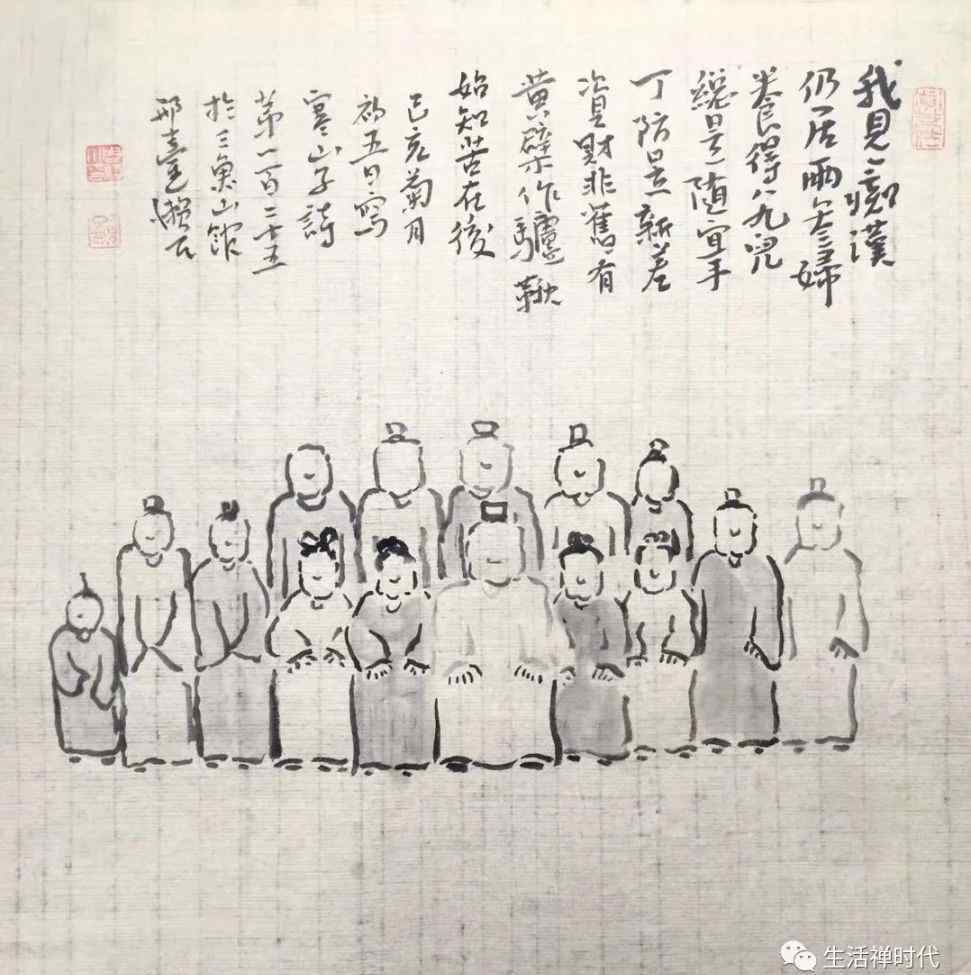 我見一癡漢
仍居兩三婦
養得八九兒
總是隨宜手
丁防是新差
資財非舊有
黄蘗作驢鞦
始知苦在後
己亥菊月
初五日寫
寒山子詩
第一百二十五
於三魚山館
邢臺
生活禅时代